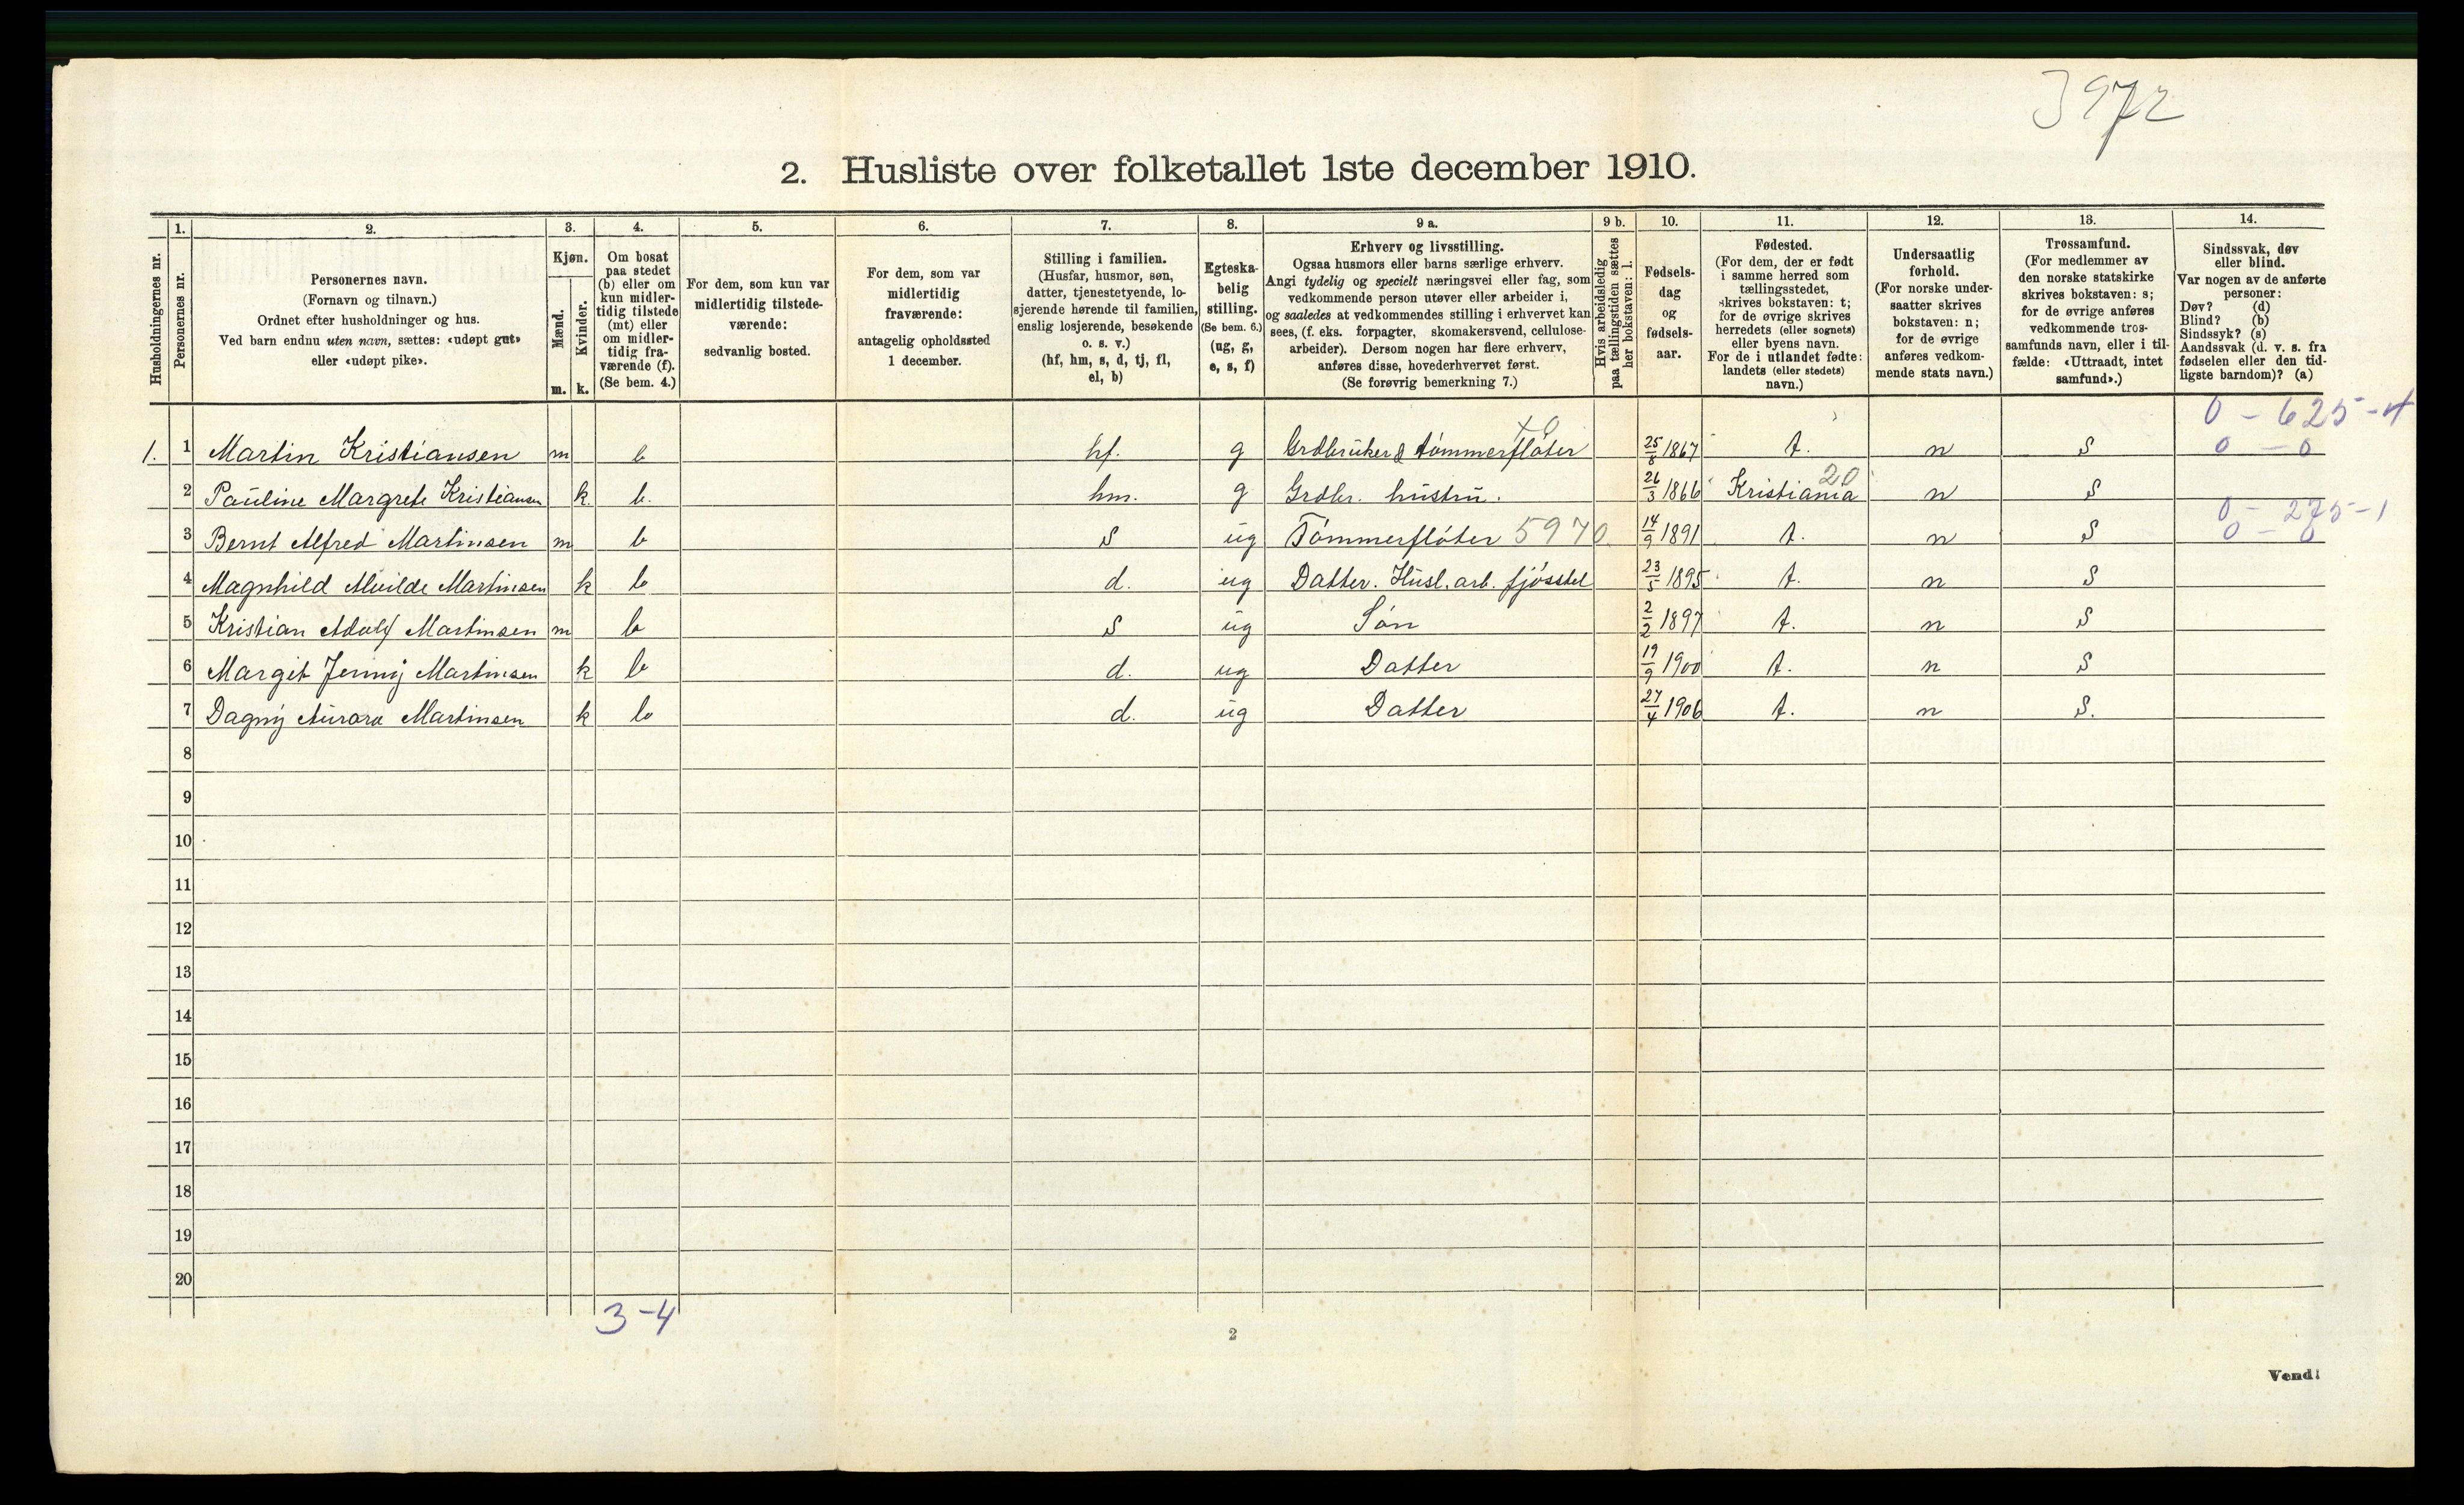 3972
2. Husliste over folketallet 1ste december 1910.
Husholdningernes nr.
1.
Personernes nr.
2.
Personernes navn.
(Fornavn og tilnavn.)
Ordnet efter husholdninger og hus.
Ved barn endnu uten navn, sættes: «udøpt gut»
eller «udøpt pike».
3.
Kjøn.
Mænd.
Kvinder.
m. k.
4.
Om bosat
paa stedet
(b) eller om
kun midler-
tidig tilstede
(mt) eller
om midler-
tidig fra-
værende (f).
(Se bem. 4.)
5.
For dem, som kun var
midlertidig tilstede-
værende:
sedvanlig bosted.
6.
For dem, som var
midlertidig
fraværende:
antagelig opholdssted
1 december.
7.
Stilling i familien.
(Husfar, husmor, søn,
datter, tjenestetyende, lo-
sjerende hørende til familien,
enslig losjerende, besøkende
o. s. v.)
(hf, hm, s, d, tj, fl,
el, b)
8.
Egteska-
belig
stilling.
(Se bem. 6.)
(ug, g,
e, s, f)
9 a.
Erhverv og livsstilling.
Ogsaa husmors eller barns særlige erhverv.
Angi tydelig og specielt næringsvei eller fag, som
vedkommende person utøver eller arbeider i,
og saaledes at vedkommendes stilling i erhvervet kan
sees, (f. eks. forpagter, skomakersvend, cellulose-
arbeider). Dersom nogen har flere erhverv,
anføres disse, hovederhvervet først.
(Se forøvrig bemerkning 7.)
9 b.
Hvis arbeidsledig
paa tællingstiden sættes
her bokstaven: l.
10.
Fødsels-
dag
og
fødsels-
aar.
11.
Fødested.
(For dem, der er født
i samme herred som
tællingsstedet,
skrives bokstaven: t;
for de øvrige skrives
herredets (eller sognets)
eller byens navn.
For de i utlandet fødte:
landets (eller stedets)
navn.)
12.
Undersaatlig
forhold.
(For norske under-
saatter skrives
bokstaven: n;
for de øvrige
anføres vedkom-
mende stats navn.)
13.
Trossamfund.
(For medlemmer av
den norske statskirke
skrives bokstaven: s;
for de øvrige anføres
vedkommende tros-
samfunds navn, eller i til-
fælde: «Uttraadt, intet
samfund».)
14.
Sindssvak, døv
eller blind.
Var nogen av de anførte
personer:
Døv? (d)
Blind? (b)
Sindssyk? (s)
Aandssvak (d. v. s. fra
fødselen eller den tid-
ligste barndom)? (a)
0 - 625 - 4
1. 1 Martin Kristiansen m b hf. g Grdbruker & tømmerfløter 25/8 1867 t. n S 0 - 0
20
2 Pauline Margrete Kristiansen k. b. hm. g Grdbr. hustru. 26/3 1866 Kristiania n S
0 - 275 - 1
3 Bernt Alfred Martinsen m b S ug Tømmerfløter 5970 14/9 1891 t. n S 0 - 0
4 Magnhild Alvilde Martinsen k b d. ug Datter. Husl. arb. fjøsstel 23/5 1895 t. n S
5 Kristian Adolf Martinsen m b S ug Søn 2/2 1897 t. n S
6 Margit Jenny Martinsen k b d. ug Datter 19/9 1900 t. n S
7 Dagny Aurora Martinsen k b d. ug Datter 27/4 1906 t. n S.
8
9
10
11
12
13
14
15
16
17
18
19
20
3-4
2
Vend!